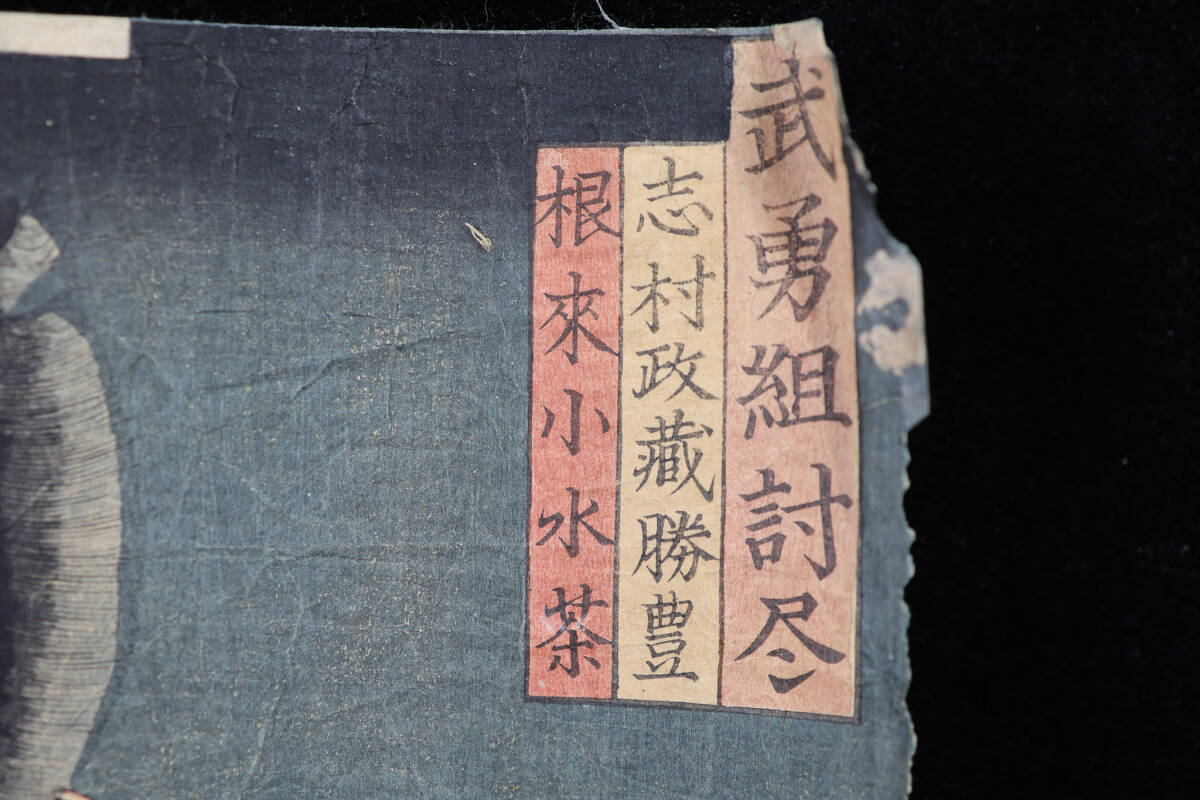 武勇組討尽
志村政藏勝豊
根來小水茶